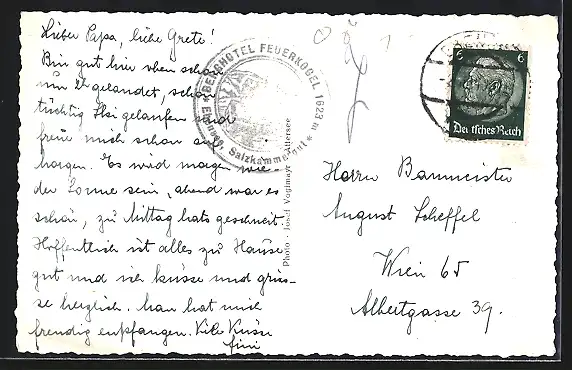 Lieber Papa, liebe Grete!
Bin gut hier oben schon
um 2h gelandet, schon
tüchtig Ski gelaufen und
freue mich schon auf
morgen. Es wird morgen wie-
der Sonne sein, abend war es
schön, zu Mittag hats geschneit.
Hoffentlich ist alles zu Hause
gut und ich küsse und grüs-
se herzlich. Man hat mich
freudig empfangen. Viele Küsse
BERGHOTEL FEUERKOGEL 1623 m
Ebensee, Salzkammergut
Photo - Josef Voglmayr - Attersee
6 6
Deutsches Reich
Herrn Baumeister
August Scheffel
Wien 65
Albertgasse 39.